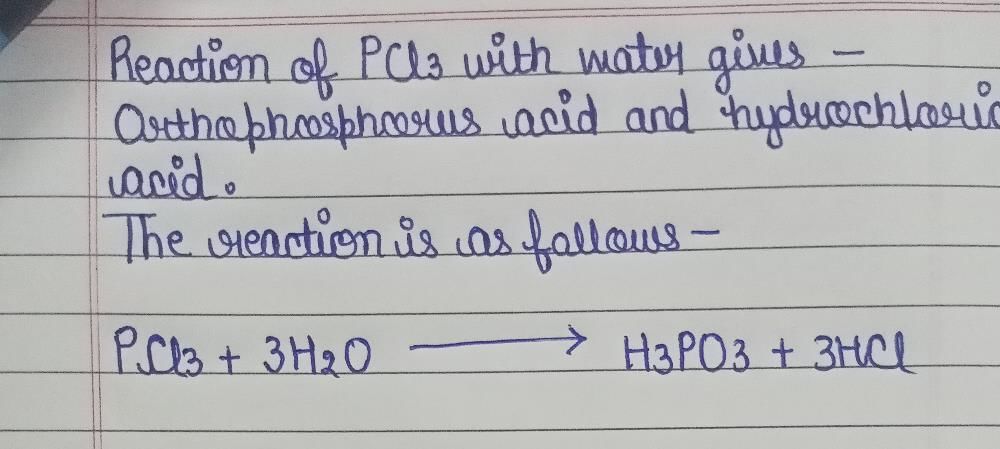 Reaction of PCl3 with water gives -
Orthophosphorus acid and hydrochloric
acid.
The reaction is as follows -
PCl3 + 3H2O ⟶ H3PO3 + 3HCl